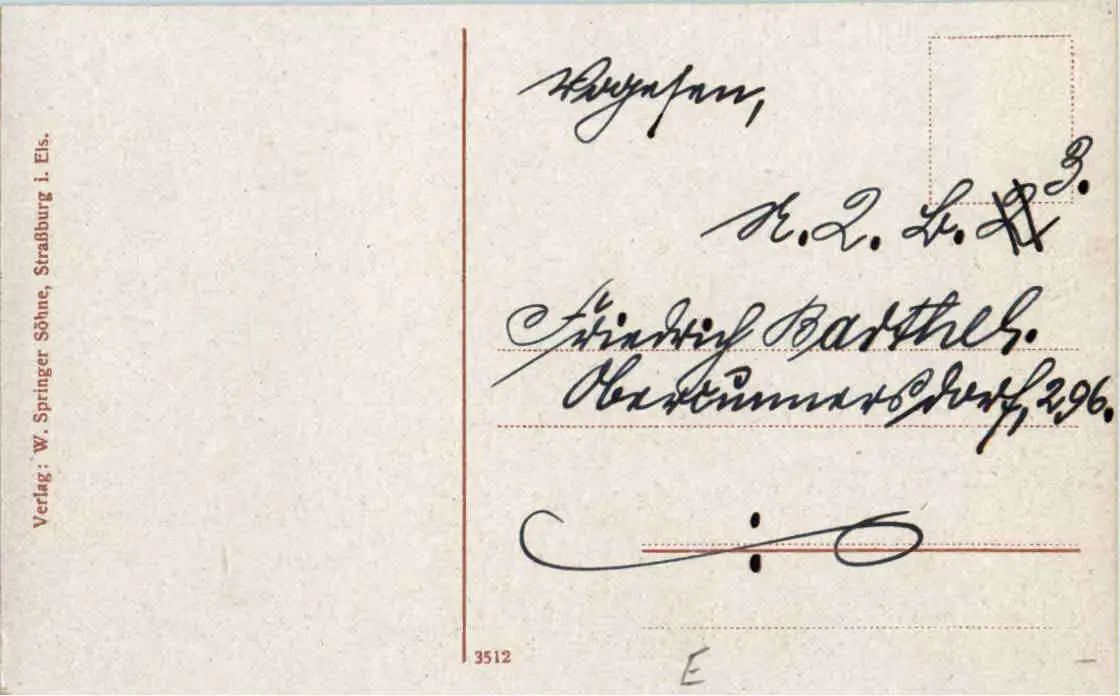 Verlag: W. Springer Söhne, Straßburg i. Els.
Vogesen,
N. 2. B. 3.
Friedrich Barthel.
Obercunnersdorf, 296.
3512
E